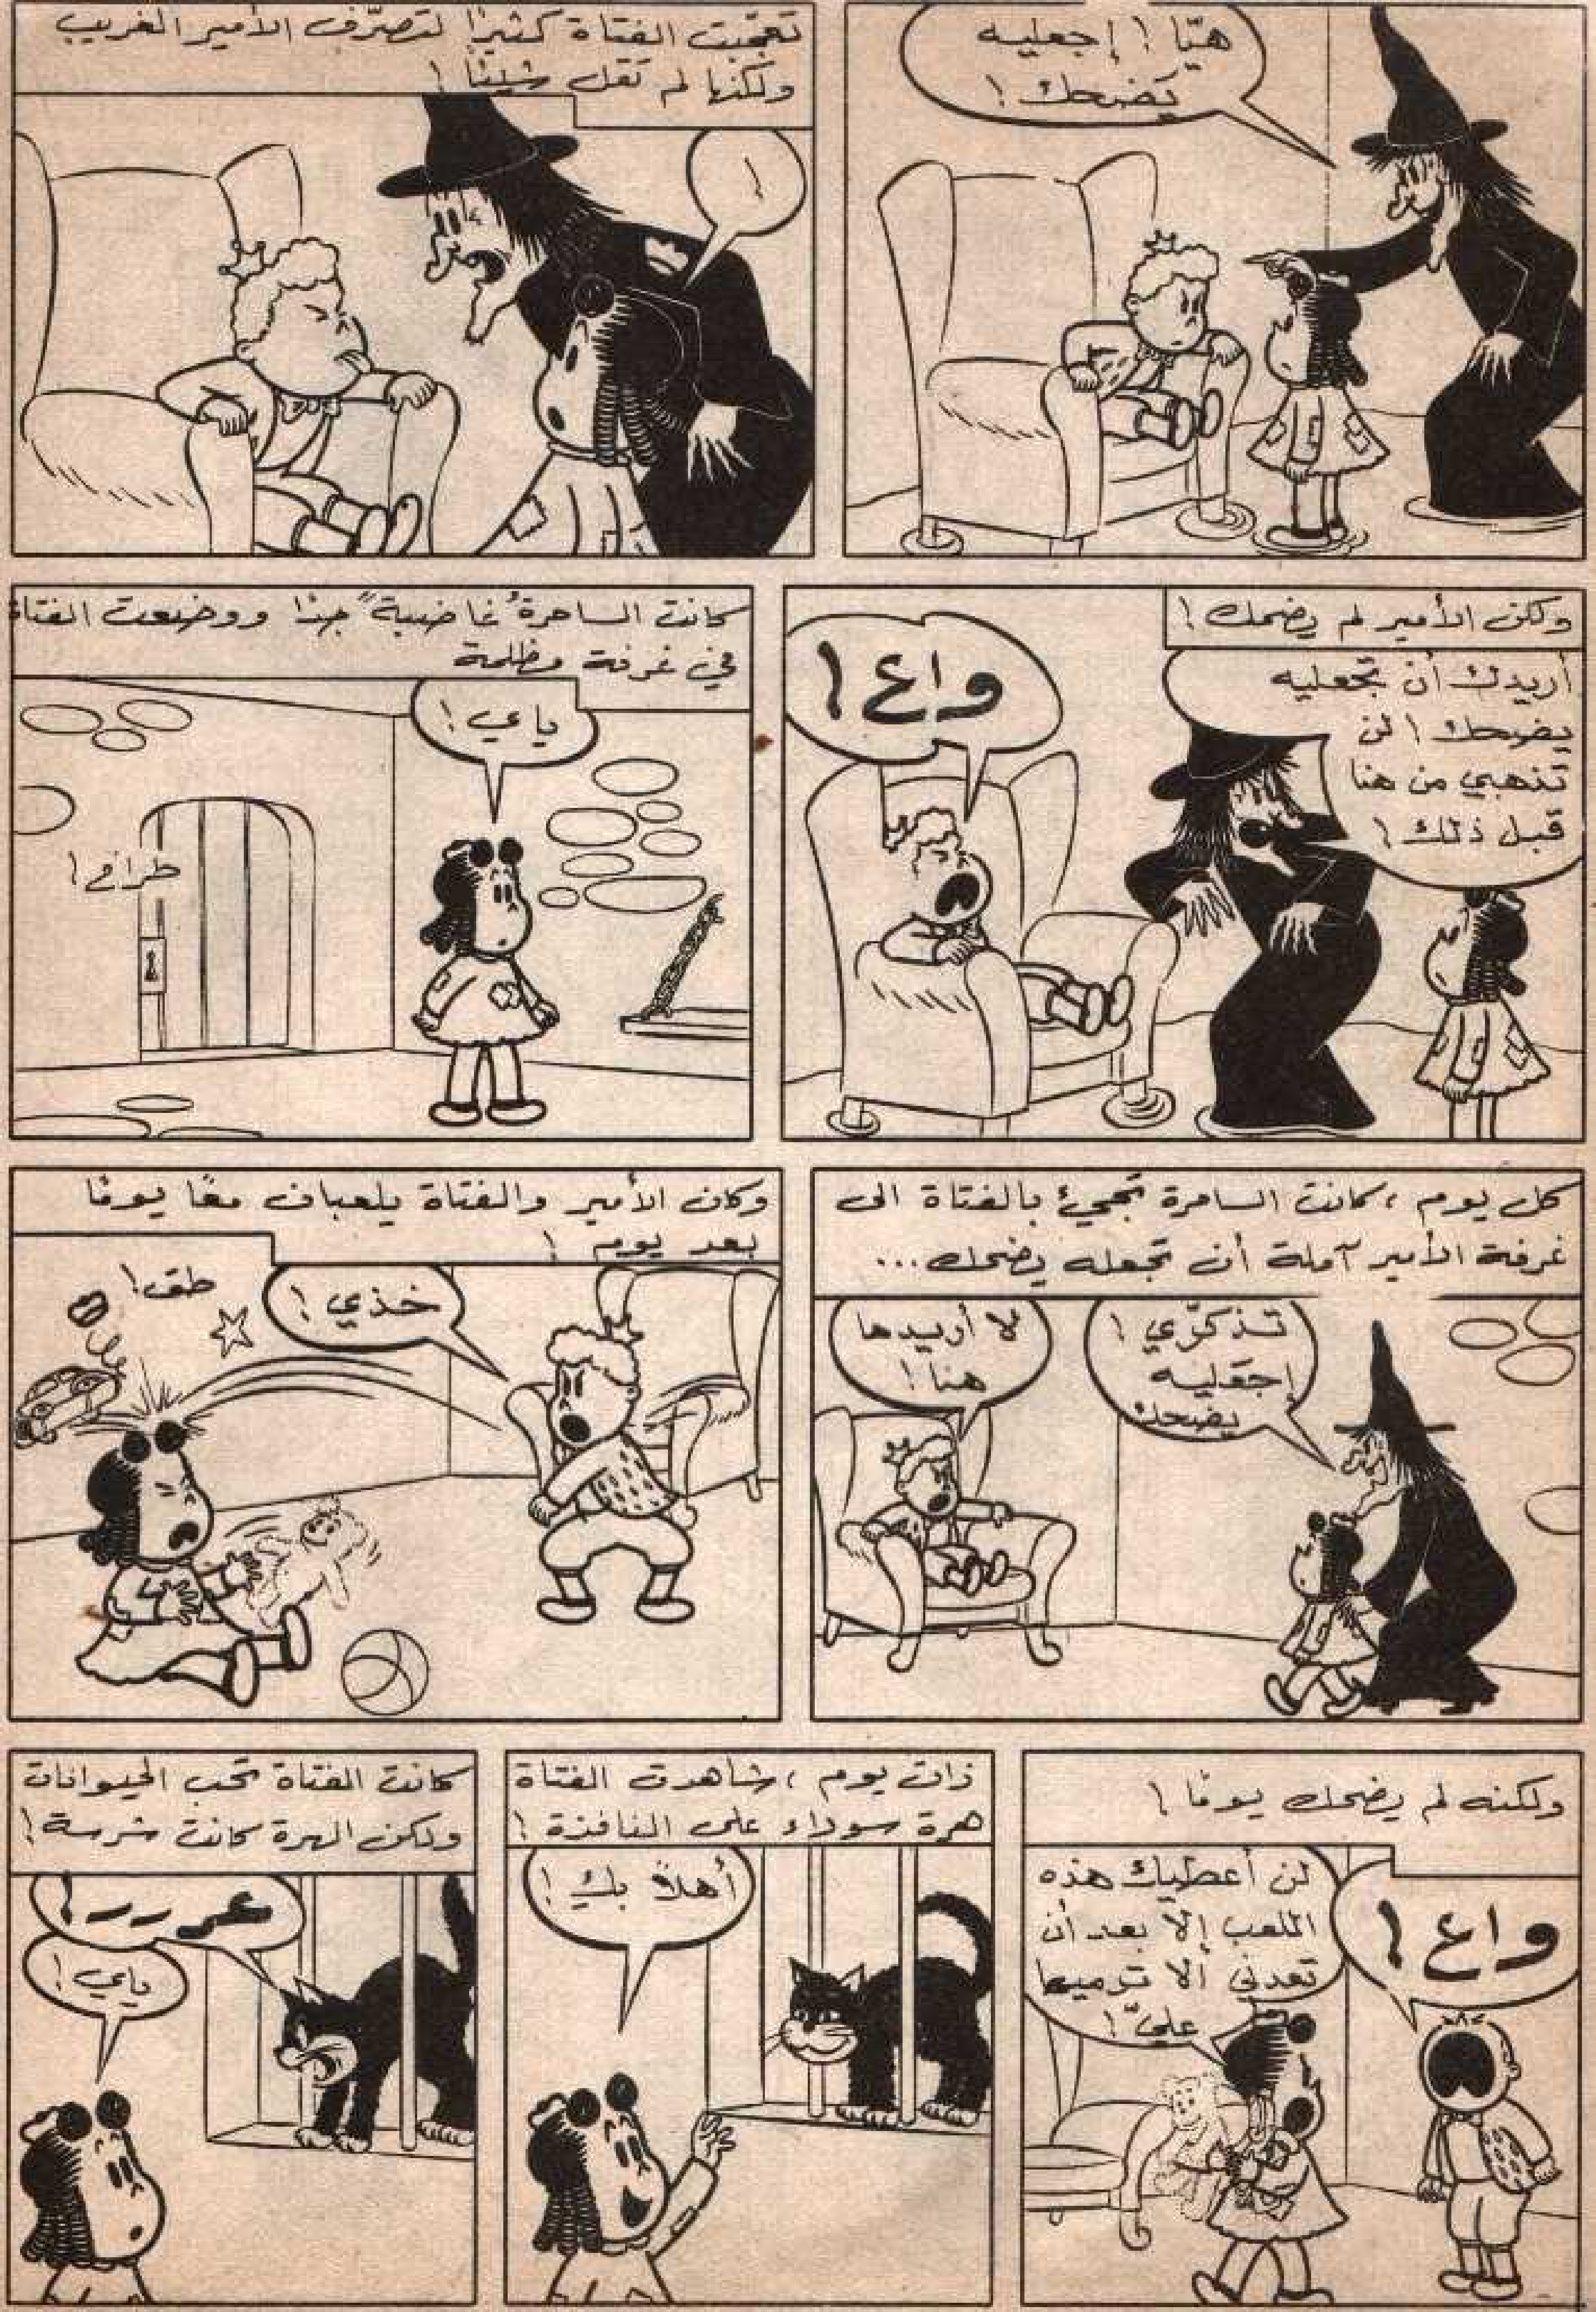 هيّا ! إجعليه
يضحك !
تعجّبت الفتاة كثيرًا لتصرّف الأمير الغريب
ولكنها لم تقل شيئًا !
!
ولكن الأمير لم يضحك !
أريدك أن تجعليه
يضحك ! لن
تذهبي من هنا
قبل ذلك !
واع !
كانت الساحرةُ غاضبةً جدًا ووضعت الفتاة
في غرفة مظلمة
ياي !
طراخ !
كل يوم ، كانت الساحرة تجيئ بالفتاة الى
غرفة الأمير آملة أن تجعله يضحك ...
تذكّري !
إجعليه
يضحك
لا أريدها
هنا !
وكان الأمير والفتاة يلعبان معًا يومًا
بعد يوم !
خذي !
طق !
ولكنه لم يضحك يومًا !
واع !
لن أعطيك هذه
اللعب إلّا بعد أن
تعدني ألا ترميها
عليّ !
ذات يوم ، شاهدت الفتاة
هرة سوداء على النافذة !
أهلاً بكِ !
كانت الفتاة تحب الحيوانات
ولكن الهرة كانت شرسة !
عررر !
ياي !